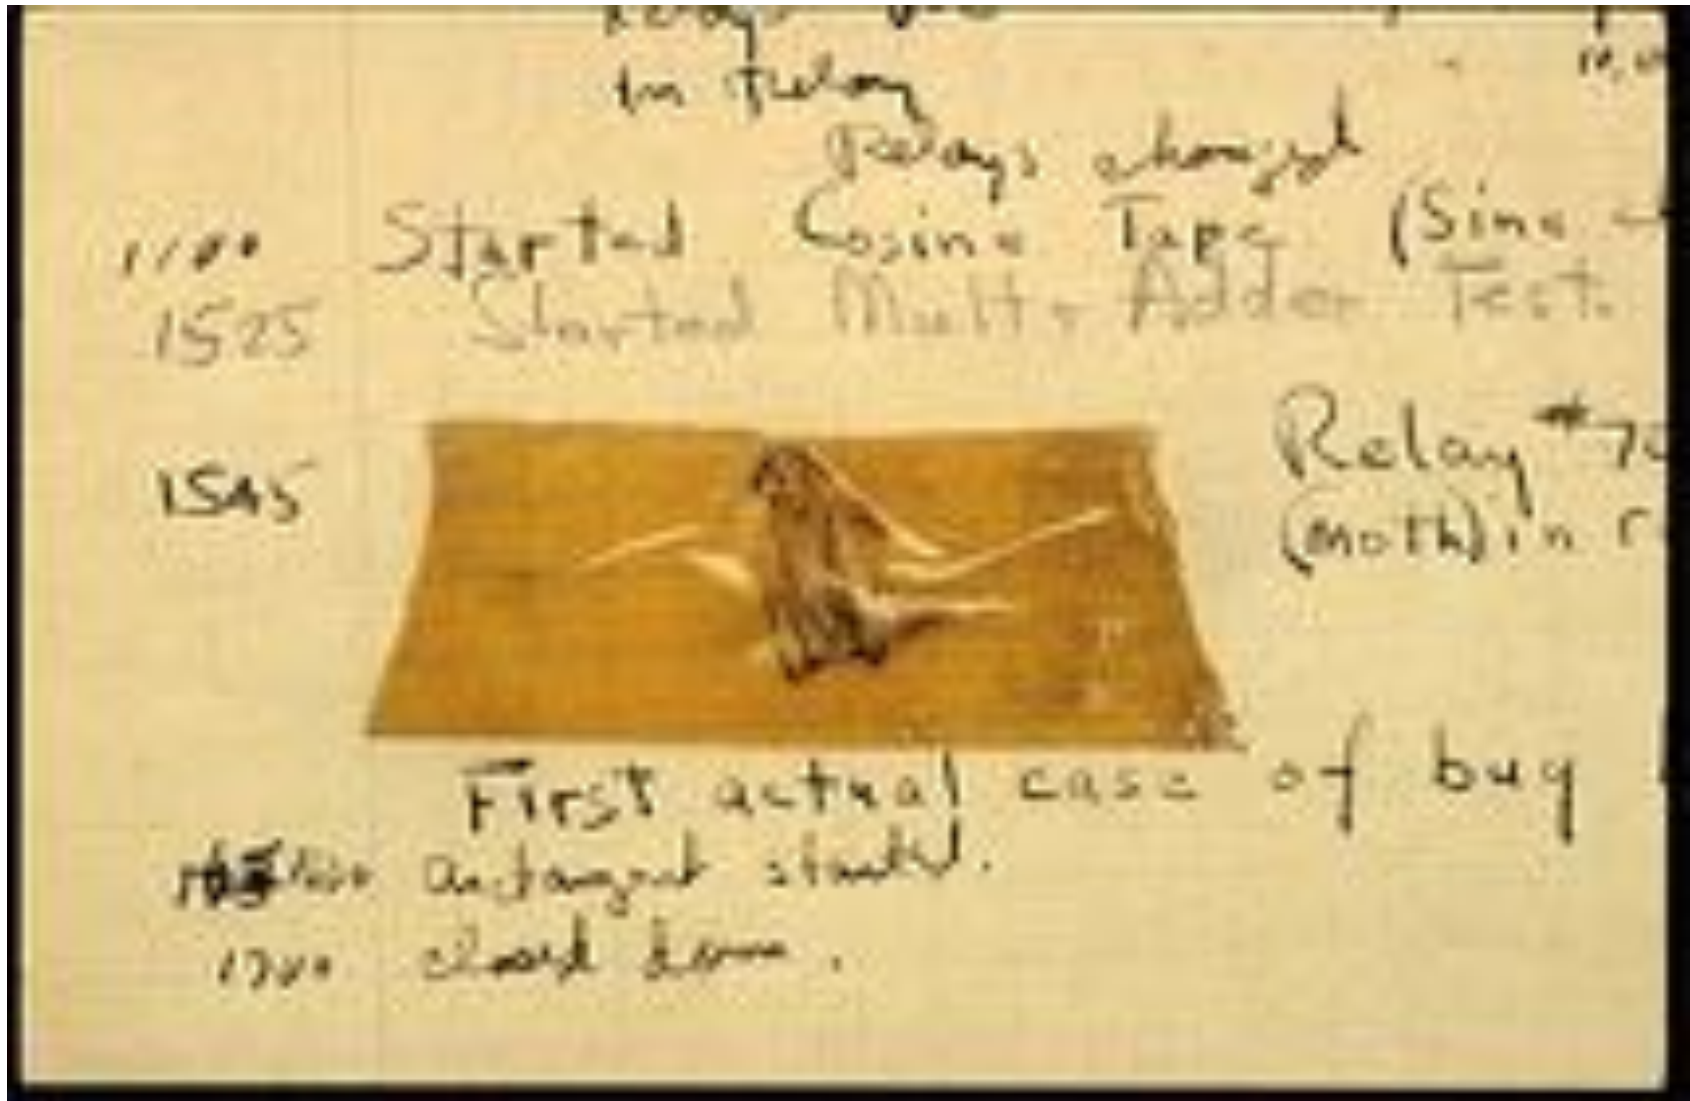 Relays
in Relay
Relays changed
1100 Started Cosine Tape (Sine
1525 Started Mult + Adder Test.
1545 Relay #70
(moth) in r
First actual case of bug
antangent started.
1700 closed down.